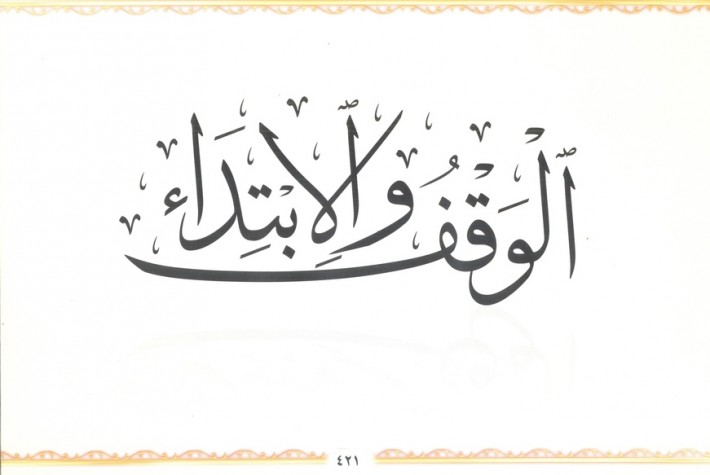 ٱلْوَقْفُ وَٱلِابْتِدَاء
٤٢١